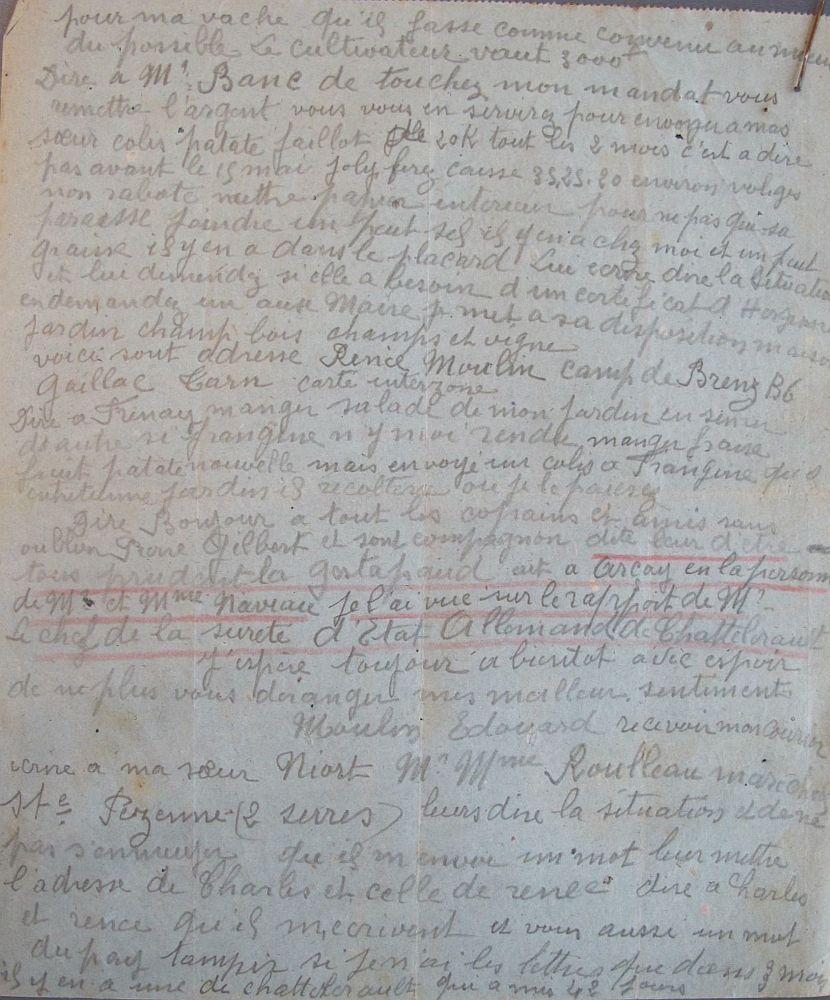 pour ma vache qu'il fasse comme convenu au mieux
du possible Le cultivateur vaut 3000f
Dire a Mr Banc de touchez mon mandat vous
remettre l'argent vous vous en servirez pour envoyer a mas
sœur colis patate faillot de 20K tout les 2 mois c'est a dire
pas avant le 15 mai joly ferez caisse 35,25,20 environ voliges
non raboté mettre papier interieur pour ne pas que sa
paraesse joindre un peut sel il y en a chez moi et un peut
graine il y en a dans le placard Lui ecrire dire la situation
et lui demendez si elle a besoin d'un certificat d'
en demandez un aux Maire je met a sa disposition maison
jardin champ bois champs et vigne
voici sont adresse Renee Moulin camp de Brens B6
Gaillac Tarn carte interzone
Dire a Frenay manger salade de mon jardin en
d'autre si frangine n'y m'oi rendu manger fraise
fruit patate nouvelle mais envoyé un colis a Frangine qu'il
entretienne jardin il recoltera ou je le paierez
Dire Bonjour a tout les copains et amis sans
oublier Gilbert et sont compagnon dite leur d'etre
tous prudent la gestapaud ait a Arcay en la personne
de Mr et Mme Naveau je l'ai vue sur le rapport de Mr
Le chef de la sureté d'Etat Allemand de Chattelerault
J'espère toujour a bientot avec espoir
de ne plus vous deranger mes meilleur sentiments
Moulin Edouard recevoir mon courier
ecrire a ma sœur Niort Mr Mme Roulleau
Ste Pezenne (2 serres) leurs dire la situation et de ne
pas s'ennuyer qu'il m'envoie un mot leur mettre
l'adresse de Charles et celle de renee dire a Charles
et renee qu'il m'ecrivent et vous aussi un mot
du pay tampis si je n'ai les lettres que dans 3 mois
il y en a une de chattelerault qui a mis 42 jours